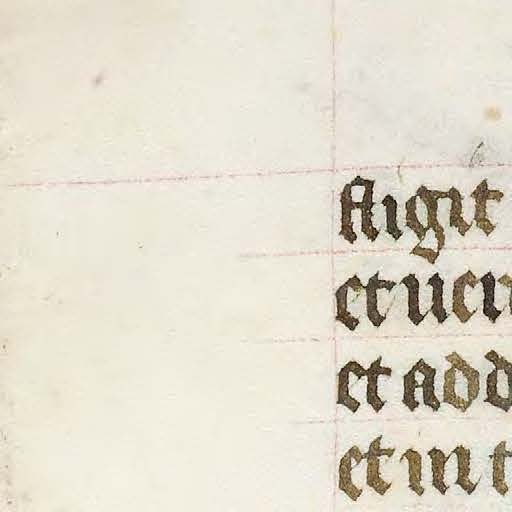 fligit
et ueri
et add
et in t